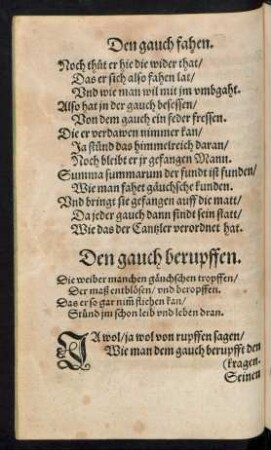 Den gauch fahen.
Noch thůt er hie die wider that/
Das er sich also fahen lat/
Vnd wie man wil mit jm vmbgaht.
Also hat jn der gauch besessen/
Von dem gauch ein feder fressen.
Die er verdawen nimmer kan/
Ja stůnd das himmelreich daran/
Noch bleibt er jr gefangen Mann.
Summa summarum der fundt ist funden/
Wie man fahet gäuchsche kunden.
Vnd bringt sie gefangen auff die matt/
Da jeder gauch dann findt sein statt/
Wie das der Cantzler verordnet hat.
Den gauch berupffen.
Die weiber manchen gäuchschen tropffen/
Der maß entblösen/ vnd beropffen.
Das er so gar nim̃ fliehen kan/
Stünd jm schon leib vnd leben dran.
JA wol/ ja wol von rupffen sagen/
Wie man dem gauch berupfft den
(kragen.
Seinen